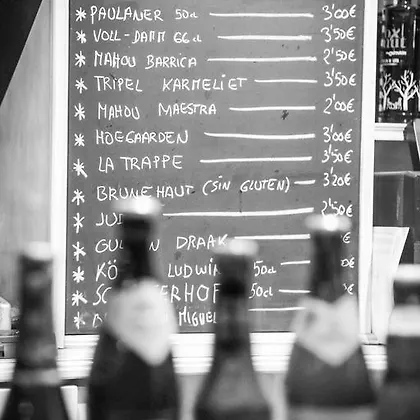 * PAULANER 50cl 3'00€
* VOLL-DAMM 66cl 3'50€
* MAHOU BARRICA 2'50€
* TRIPEL KARMELIET 3'50€
* MAHOU MAESTRA 2'00€
* HOEGAARDEN 3'00€
* LA TRAPPE 3'50€
* BRUNEHAUT (SIN GLUTEN) 3'20€
* 2'50€
* DRAAK €
* KÖ LUDWI 50cl 0€
* ERHOF 50cl
* MIGUEL